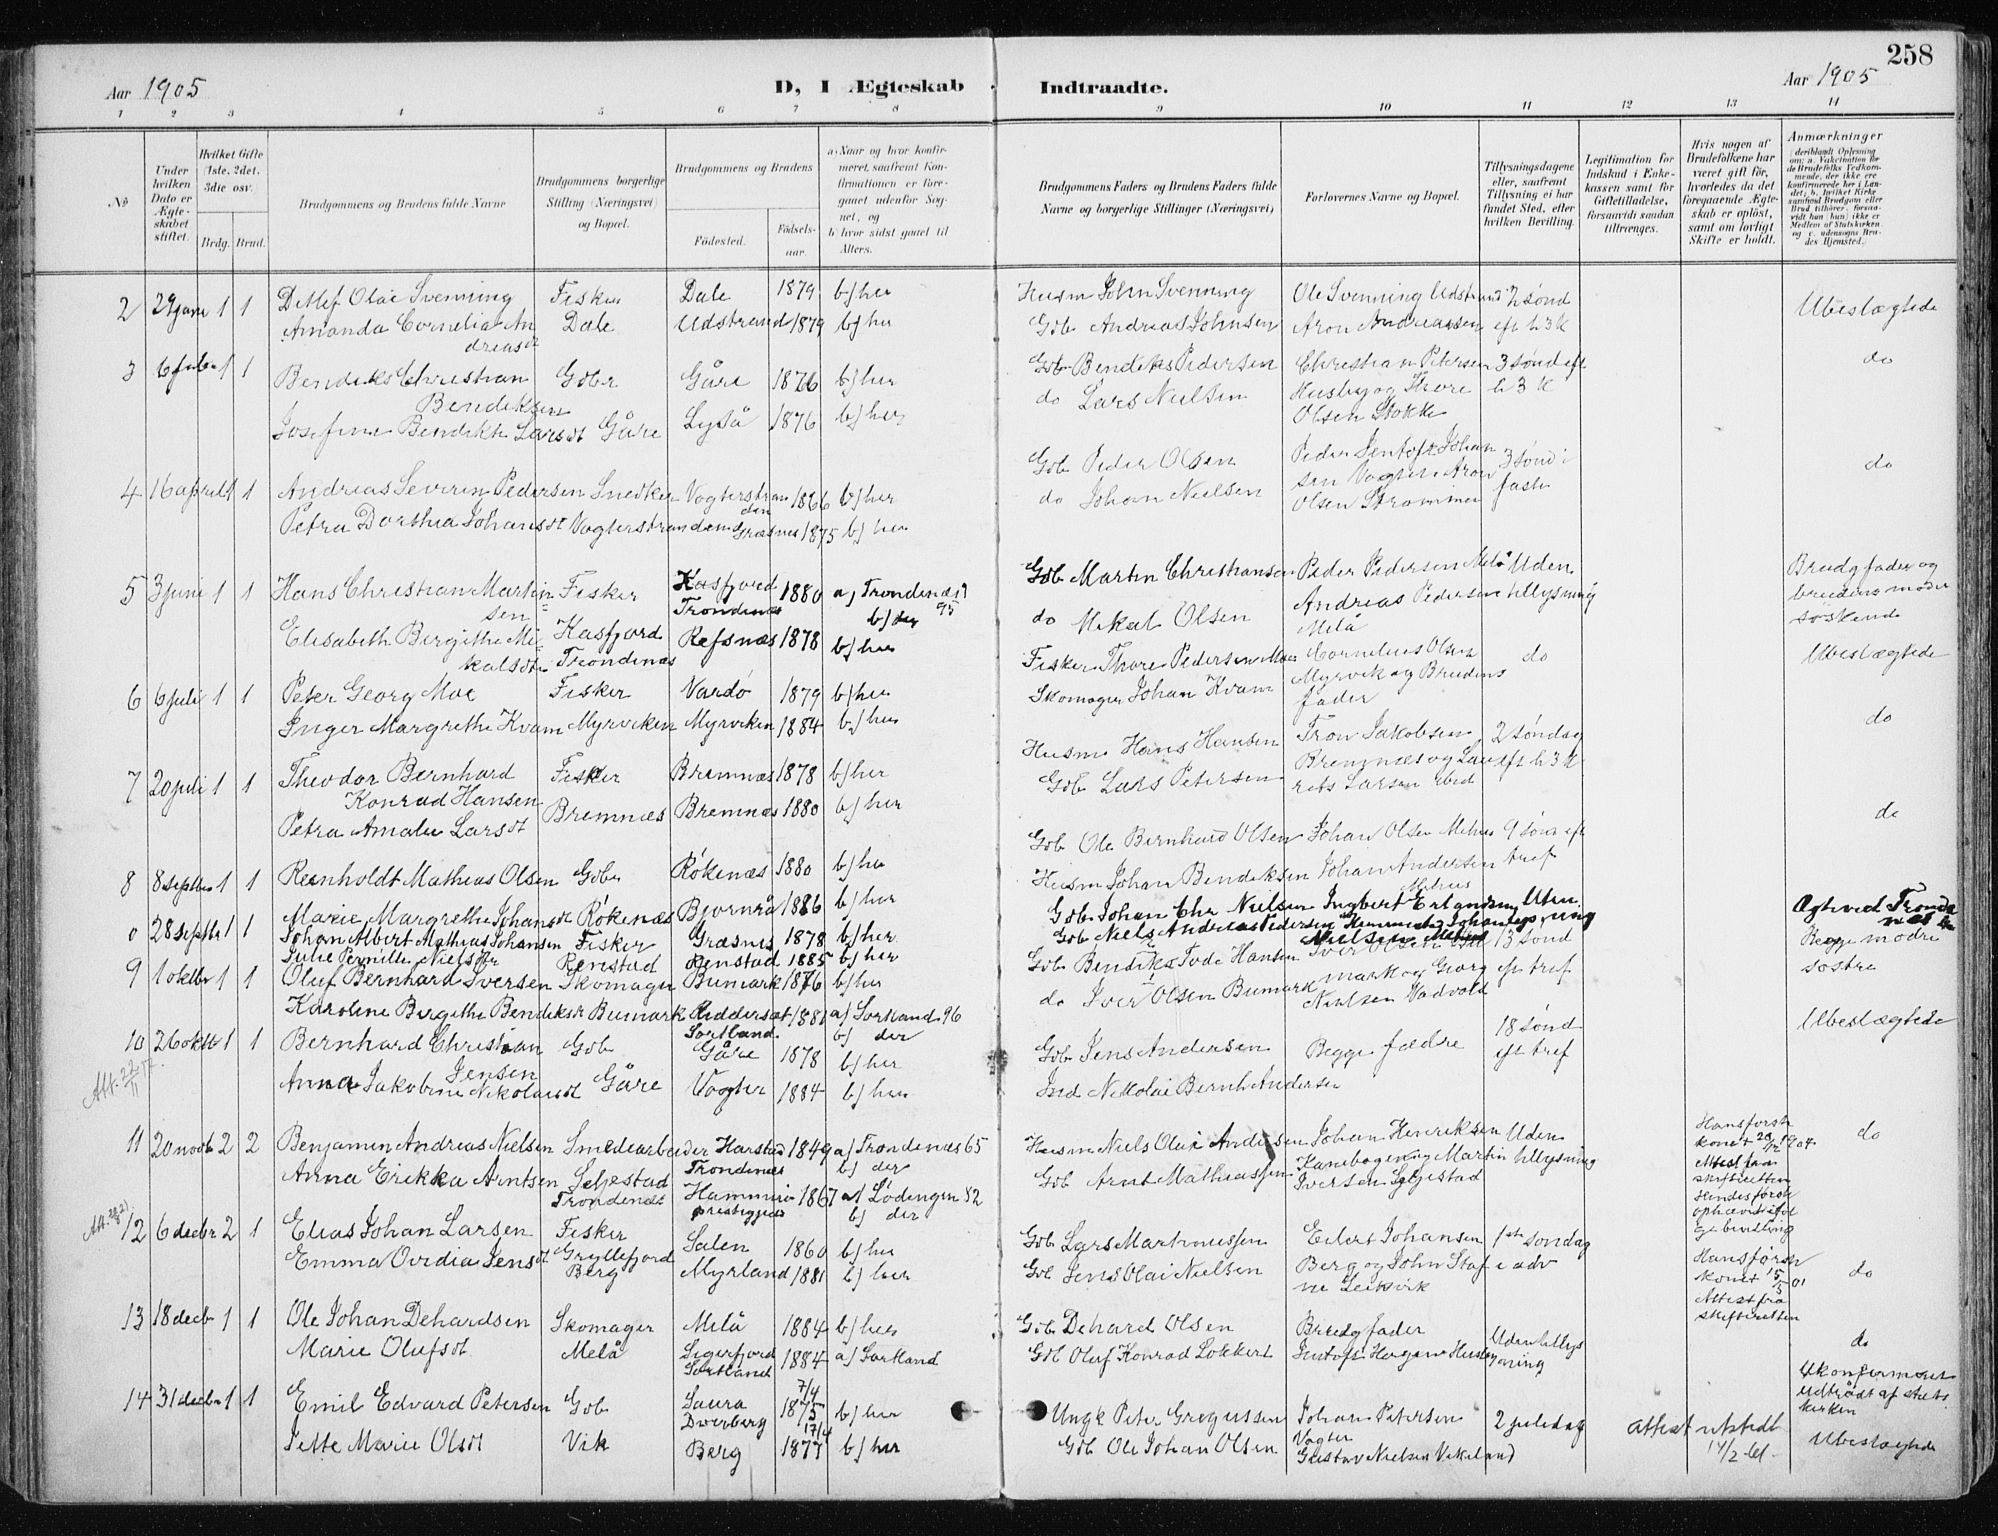 258
Aar 1905
D, I Ægteskab Indtraadte.
Aar 1905
1 2 3 4 5 6 7 8 9 10 11 12 13 14
No
Under hvilken Dato er Ægteskabet stiftet.
Hvilket Gifte (1ste. 2det. 3die osv.
Brdg. Brud.
Brudgommens og Brudens fulde Navne
Brudgommens borgerlige Stilling (Næringsvei) og Bopæl.
Brudgommens og Brudens
Fødested.
Fødsels-aar.
a) Naar og hvor konfirmeret, saafremt Konfirmationen er foregaaet udenfor Sognet, og
b) hvor sidst gaaet til Alters.
Brudgommens Faders og Brudens Faders fulde Navne og borgerlige Stillinger (Næringsvei)
Forlovernes Navne og Bopæl.
Tillysningsdagene eller, saafremt Tillysning ei har fundet Sted, efter hvilken Bevilling.
Legitimation for Indskud i Enkekassen samt for Giftetilladelse, forsaavidt saadan tiltrænges.
Hvis nogen af Brudefolkene har været gift før, hvorledes da det foregaaende Ægteskab er opløst, samt om lovligt Skifte er holdt.
Anmærkninger
2 29 janu 1 1 Detlef Olai Svenning Fisker Dale 1879 b) her Husm John Svenning Ole Svenning Udstrand 2 sønd Ubeslægtede
Amanda Cornelia An Dale Udstrand 1879 b) her Gbr Andreas Johnsen Aron Andreassen eft h 3 K
dreasdt
3 6 febr 1 1 Bendiks Christian Gbr Gåre 1876 b) her Gbr Bendiks Pedersen Christian Petersen 3 sønd eft do
Bendiksen do Lars Nielsen Husby og Thore h 3 K
Josefine Bendikte Larsdt Gåre Lyså 1876 b) her Olsen Stokke
4 16 april 1 1 Andreas Severin Pedersen Snedker Vogterstran 1866 b) her Gbr Peder Olsen Peder Jentoft Johan 3 sønd i do
den do Johan Nielsen sen Vogter Aron faste
Petra Dorthea Johansdt Vogterstranden Græsnes 1875 b) her Olsen Strømmen
5 3 juni 1 1 Hans Christian Martin Fisker Kasfjord 1880 a) Trondenæs Gbr Martin Christiansen Peder Pedersen Melå Uden Brudg fader og
sen Trondenæs b) her 95 Andreas Pedersen tillysning brudens moder
Elisabeth Bergithe Mi Kasfjord Refsnæs 1878 b) her do Mikal Olsen Melå søskende
kalsdt Trondenæs
6 6 juli 1 1 Peter Georg Moe Fisker Vardø 1879 b) her Fisker Thore Pedersen Moe Cornelius Olsen do Ubeslægtede
Inger Margrethe Kvam Myrviken Myrviken 1884 b) her Skomager Johan Kvam Myrvik og Brudens
fader
7 20 juli 1 1 Theodor Bernhard Fisker Bremnæs 1878 b) her Husm Hans Hansen Tron Jakobsen 2 søndag do
Konrad Hansen Bremnæs og Lau eft h 3 K
Petra Amalie Larsdt Bremnæs Bremnæs 1880 b) her Gbr Lars Petersen rits Larsen ibid
8 8 septbr 1 1 Reinholdt Mathias Olsen Gbr Røkenæs 1880 b) her Gbr Ole Bernhard Olsen Johan Olsen Melnes 9 sønd eft do
Marie Margrethe Johansdt Røkenæs Bjørnrå 1886 b) her Husm Johan Bendiksen Johan Andersen tref
0 28 septbr 1 1 Johan Albert Mathias Johansen Fisker Græsnes 1878 b) her Gbr Johan Chr Nielsen Ingbert Erlandsen Uten
Julie Pernille Nielsdtr Renstad Renstad 1885 b) her Gbr Niels Andreas Pedersen
9 1 oktbr 1 1 Oluf Bernhard Iversen Skomager Bumark 1876 b) her Gbr Bendiks Tode Hansen 13 sønd Begge mødre
Karoline Bergithe Bendiksdt Bumark Reddersæt 1881 a) Sortland 96 do Iver Olsen Bumark mark og Georg eft tref søstre
Sortland b) der Nielsen Vadvold
10 26 oktbr 1 1 Bernhard Christian Gbr Gåre 1878 b) her Gbr Jens Andersen Begge fædre 18 sønd Ubeslægtede
Jensen eft tref
Anna Jakobine Nikolaisdt Gåre Vogter 1884 b) her Ind Nikolai Bernh Andersen
11 20 novb 2 2 Benjamin Andreas Nielsen Smedearbeider Harstad 1849 a) Trondenæs 65 Husm Niels Olai Andersen Johan Henriksen Uden Hans forste do
Trondenæs b) der Kanebogen og Martin tillysning kone + 20/12 1904
Anna Erikka Arntsen Seljestad Hammerø 1867 a) Lödingen 82 Gbr Arnt Mathiassen Iversen Seljestad Attest fra
Trondenæs præstegjeld b) der skifteretten
12 6 decbr 2 1 Elias Johan Larsen Fisker Salen 1860 b) her Gbr Lars Martinussen Eilert Johansen 1ste søndag Hans første do
Gryllefjord kone + 15/5 01
Emma Ovedia Jensdt Berg Myrland 1881 b) her Gbr Jens Olai Nielsen Berg og John Staf i adv Attest fra
ne Leikvik skifteretten
13 18 decb 1 1 Ole Johan Dehardsen Skomager Melå 1884 b) her Gbr Dehard Olsen Brudg fader Uden tillys do
Marie Olufsdt Melå Sigerfjord 1884 a) Sortland Gbr Oluf Konrad Lokkert Jentoft Hagen Husby ning
Sortland
14 31 decbr 1 1 Emil Edvard Petersen Gbr Saura 7/4 1875 b) her Ungk Peter Gregussen Johan Petersen 2 juledag attest utstedt Ukonfirmeret
Dverberg Vogter 14/2 udtrådt af stats
kirken
Jette Marie Olsdt Vik Berg 17/4 1877 b) her Gbr Ole Johan Olsen Gustav Nielsen Vikeland Ubeslægtede